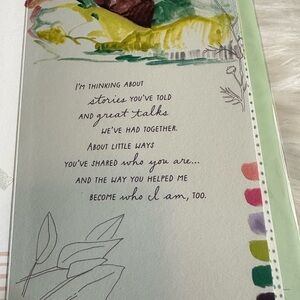 I'M THINKING ABOUT
stories YOU'VE TOLD
AND great talks
WE'VE HAD TOGETHER.
ABOUT LITTLE WAYS
YOU'VE SHARED who you are...
AND THE WAY YOU HELPED ME
BECOME who I am, TOO.